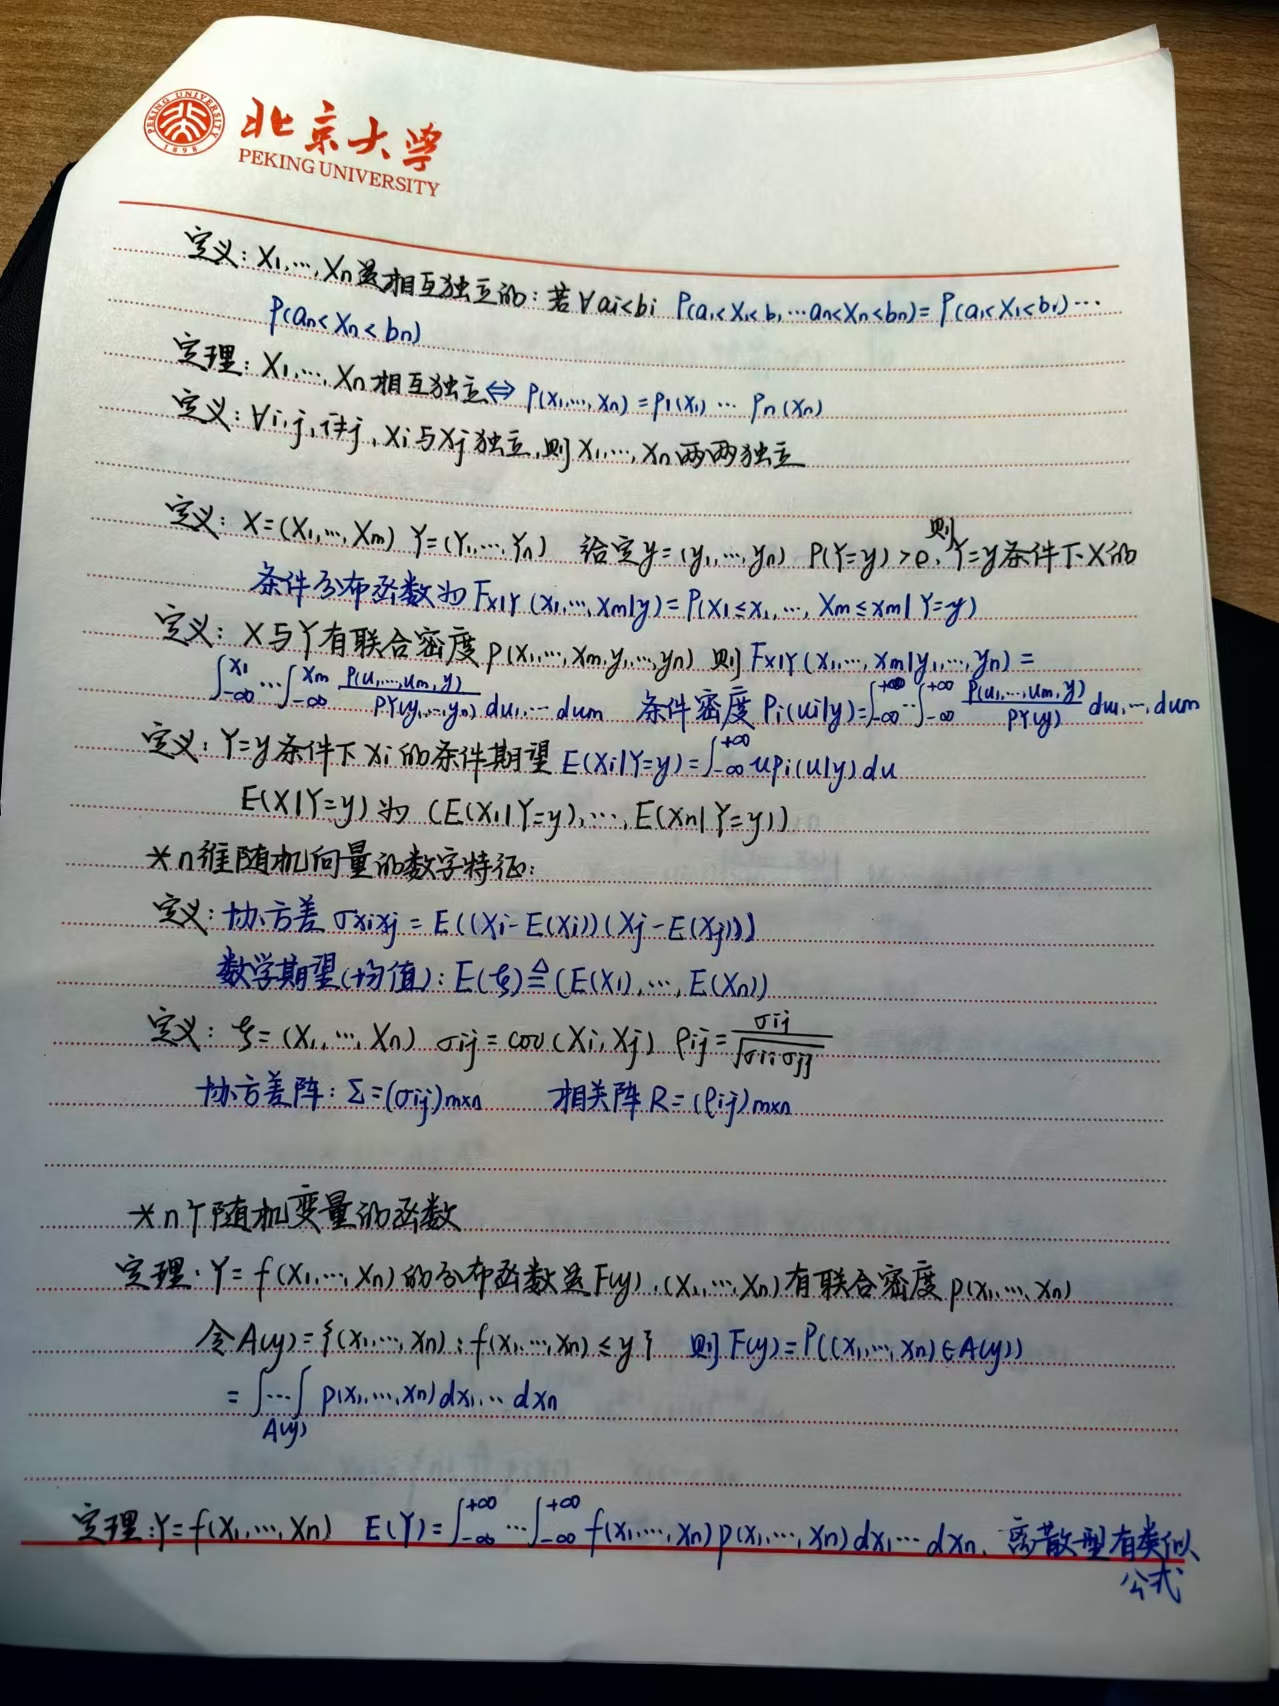 北京大学
PEKING UNIVERSITY
PEKING UNIVERSITY
1898
定义: X1,…,Xn是相互独立的: 若∀ai<bi P(a1<X1<b1…an<Xn<bn)=P(a1<X1<b1)…
P(an<Xn<bn)
定理: X1,…,Xn相互独立⇔P(x1,…,xn)=P1(x1)…Pn(xn)
定义: ∀i,j,i≠j,Xi与Xj独立,则X1,…,Xn两两独立
定义: X=(X1,…,Xm) Y=(Y1,…,Yn) 给定y=(y1,…,yn) P(Y=y)>0,则Y=y条件下X的
条件分布函数为FX|Y(x1,…,xm|y)=P(X1≤x1,…,Xm≤xm|Y=y)
定义: X与Y有联合密度p(x1,…,xm,y1,…,yn) 则FX|Y(x1,…,xm|y1,…,yn)=
∫-∞^x1…∫-∞^xm P(u1,…,um,y)/PY(y1,…,yn) du1,…dum 条件密度Pi(ui|y)=∫-∞^+∞…∫-∞^+∞ P(u1,…,um,y)/PY(y) du1,…,dum
定义: Y=y条件下Xi的条件期望E(Xi|Y=y)=∫-∞^+∞ uPi(u|y)du
E(X|Y=y)为(E(X1|Y=y),…,E(Xn|Y=y))
*n维随机向量的数字特征:
定义: 协方差σxixj=E((Xi-E(Xi))(Xj-E(Xj)))
数学期望(均值): E(ξ)≜(E(X1),…,E(Xn))
定义: ξ=(X1,…,Xn) σij=cov(Xi,Xj) ρij=σij/√σiiσjj
协方差阵: Σ=(σij)m×n 相关阵R=(ρij)m×n
*n个随机变量的函数
定理: Y=f(X1,…,Xn)的分布函数是F(y),(X1,…,Xn)有联合密度p(x1,…,xn)
令A(y)={(x1,…,xn):f(x1,…,xn)≤y} 则F(y)=P((X1,…,Xn)∈A(y))
=∫…∫A(y) p(x1,…,xn)dx1…dxn
定理: Y=f(X1,…,Xn) E(Y)=∫-∞^+∞…∫-∞^+∞ f(x1,…,xn)p(x1,…,xn)dx1…dxn. 离散型有类似
公式